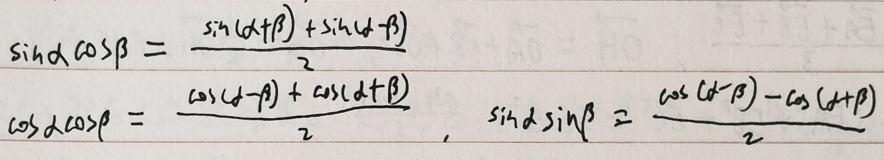 sinα cosβ = \frac{sin(α+β) + sin(α-β)}{2}
cosα cosβ = \frac{cos(α-β) + cos(α+β)}{2} , sinα sinβ = \frac{cos(α-β) - cos(α+β)}{2}